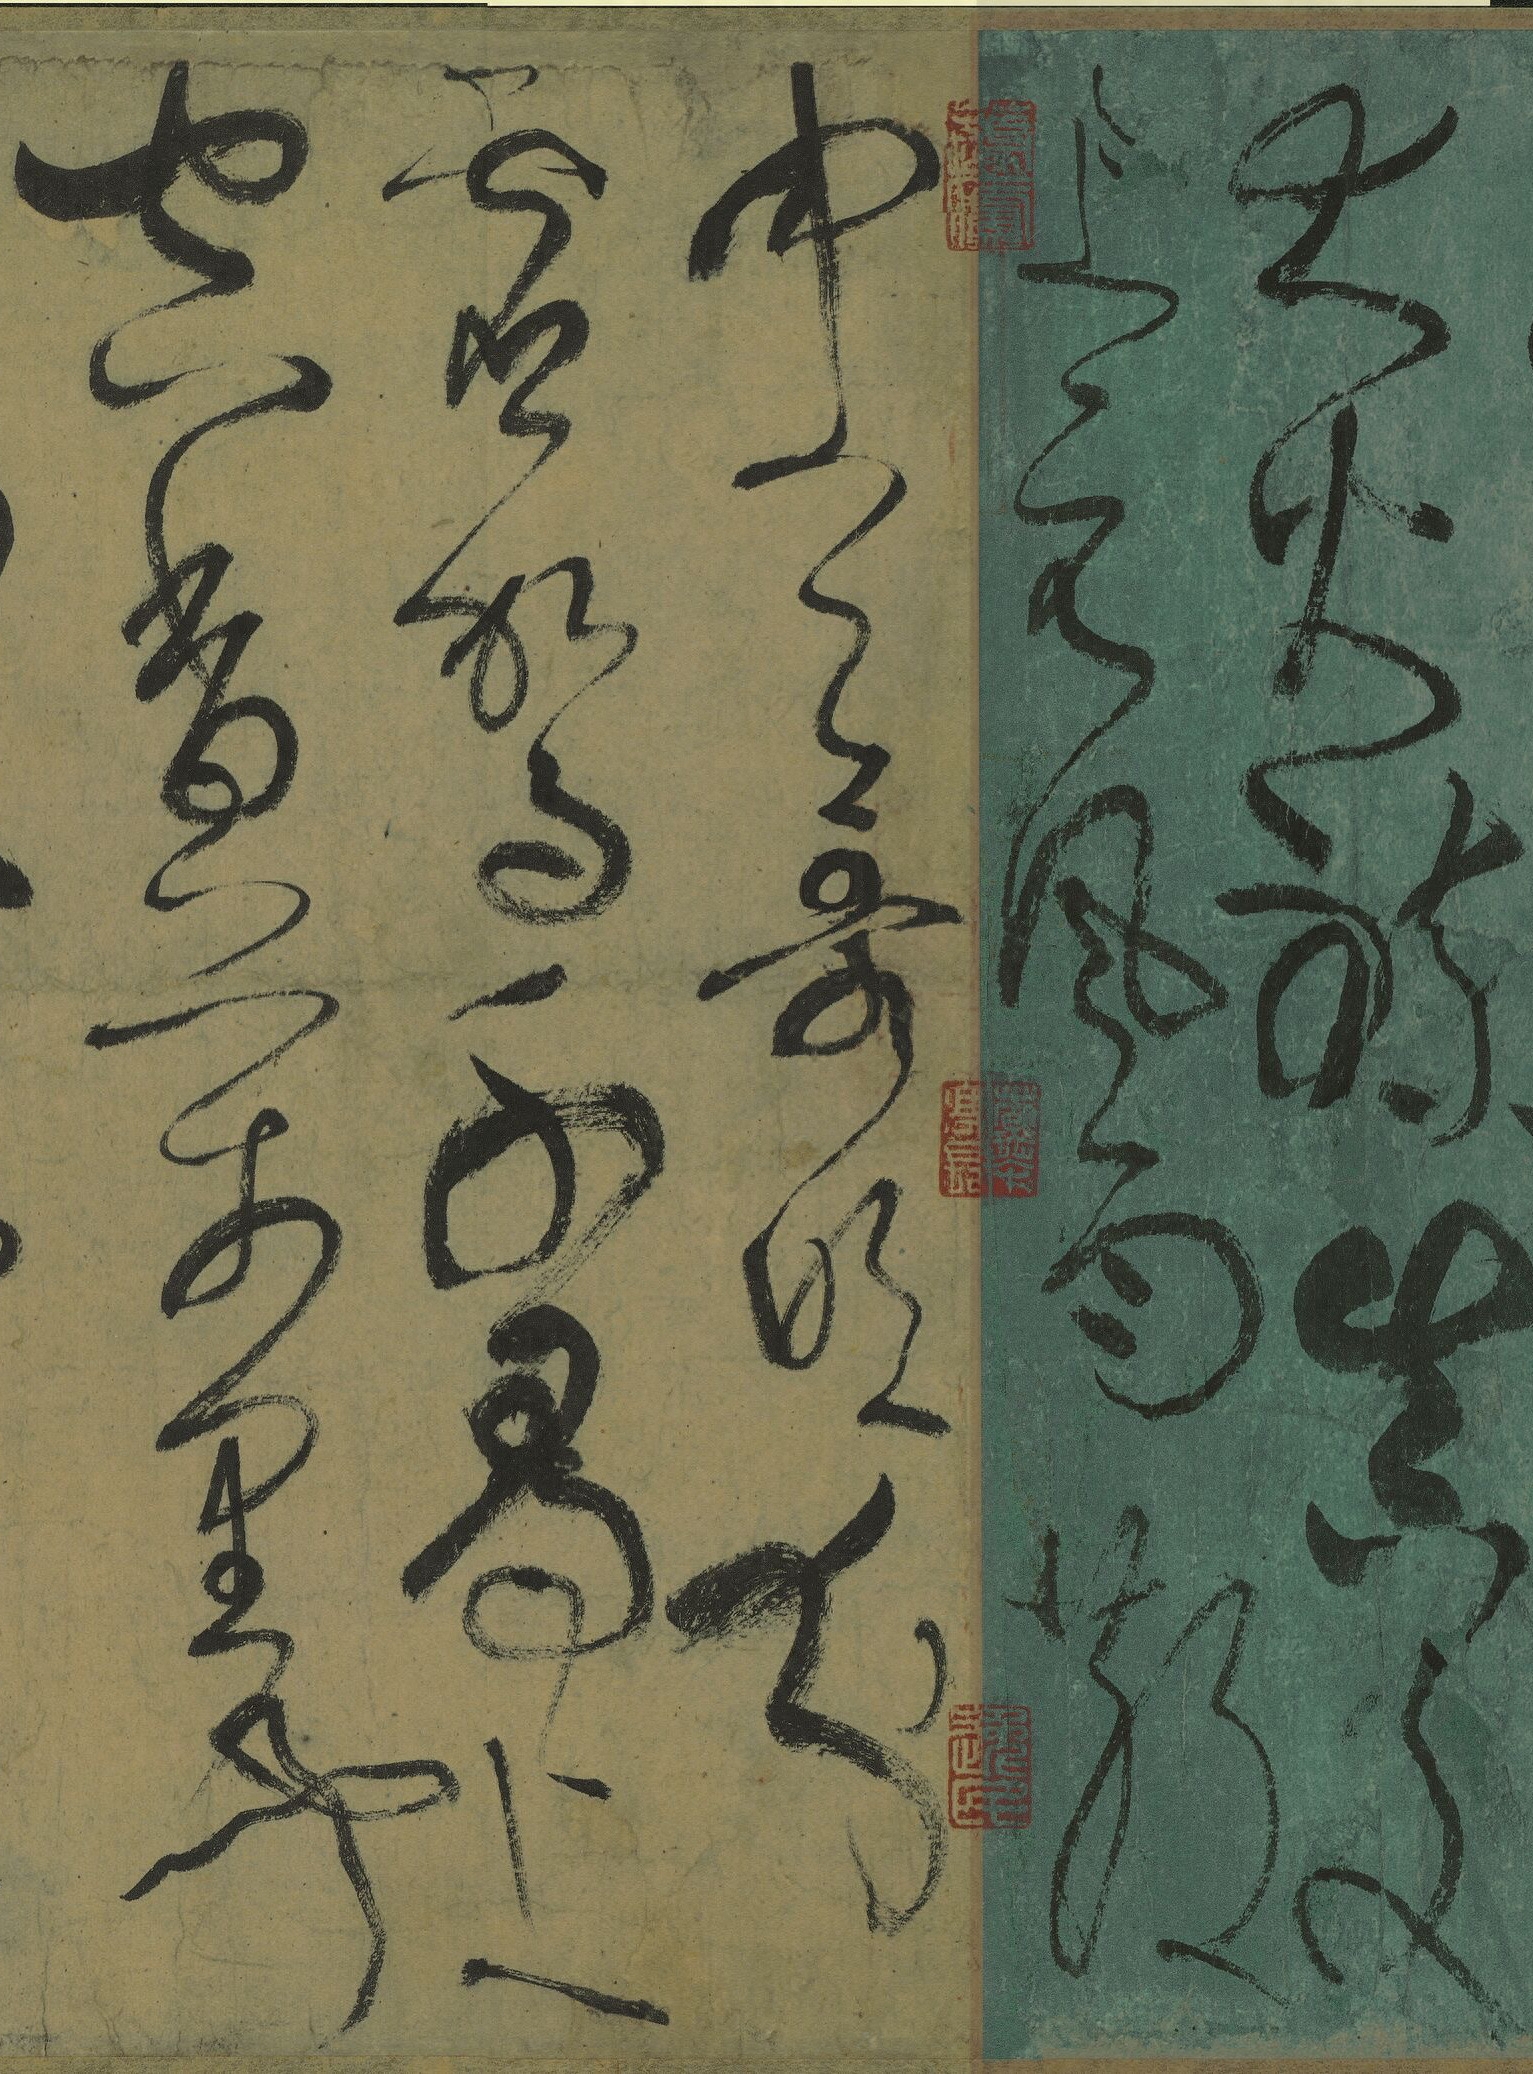 大火鍊真文
上元風雨散
中天哥吹分
虛駕千尋上
空香萬里聞